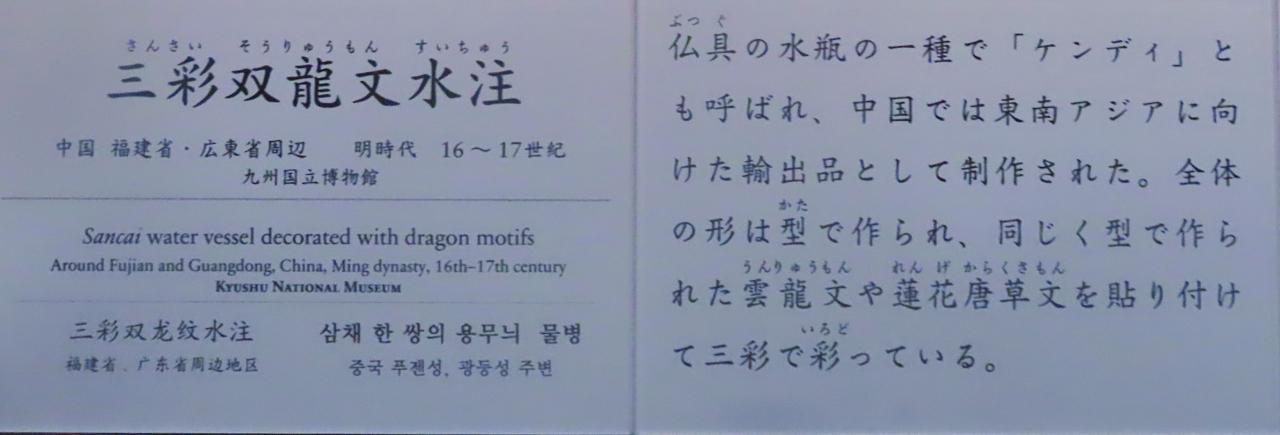 さんさい そうりゅうもん すいちゅう
三彩双龍文水注
中国 福建省・広東省周辺 明時代 16～17世紀
九州国立博物館
Sancai water vessel decorated with dragon motifs
Around Fujian and Guangdong, China, Ming dynasty, 16th–17th century
Kyushu National Museum
三彩双龙纹水注
福建省、广东省周边地区
삼채 한 쌍의 용무늬 물병
중국 푸젠성, 광둥성 주변
ぶつ ぐ
仏具の水瓶の一種で「ケンディ」と
も呼ばれ、中国では東南アジアに向
けた輸出品として制作された。全体
かた
の形は型で作られ、同じく型で作ら
うんりゅうもん れん げ からくさもん
れた雲龍文や蓮花唐草文を貼り付け
いろど
て三彩で彩っている。